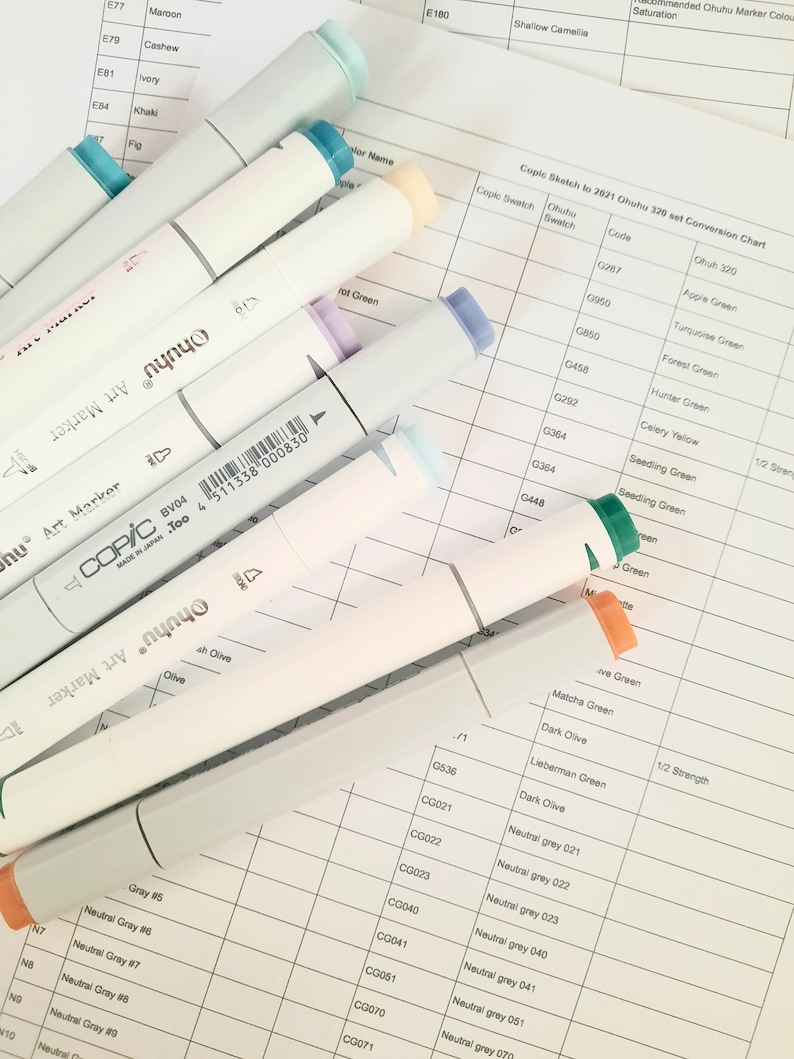 E77 Maroon
E79 Cashew
E81 Ivory
E84 Khaki
Fig
E180 Shallow Camellia
Recommended Ohuhu Marker Colou
Saturation
Copic Sketch to 2021 Ohuhu 320 set Conversion Chart
Color Name
Copic Swatch
Ohuhu
Swatch
Code
Ohuh 320
G287 Apple Green
G950 Turquoise Green
G850 Forest Green
G458 Hunter Green
G292 Celery Yellow
G364 Seedling Green 1/2 Streng
G364 Seedling Green
G448
Green
Matcha Green
Dark Olive
Lieberman Green 1/2 Strength
G536 Dark Olive
CG021 Neutral grey 021
CG022 Neutral grey 022
CG023 Neutral grey 023
CG040 Neutral grey 040
CG041 Neutral grey 041
CG051 Neutral grey 051
CG070 Neutral grey 070
CG071
Olive
Olive
Gray #5
N7 Neutral Gray #6
N8 Neutral Gray #7
N9 Neutral Gray #8
N10 Neutral Gray #9
Ohuhu®
Art Marker
BRUSH
Art Marker
FINE
COPIC BV04
MADE IN JAPAN .Too
4 511338 000830
Ohuhu®
Art Marker
BROAD